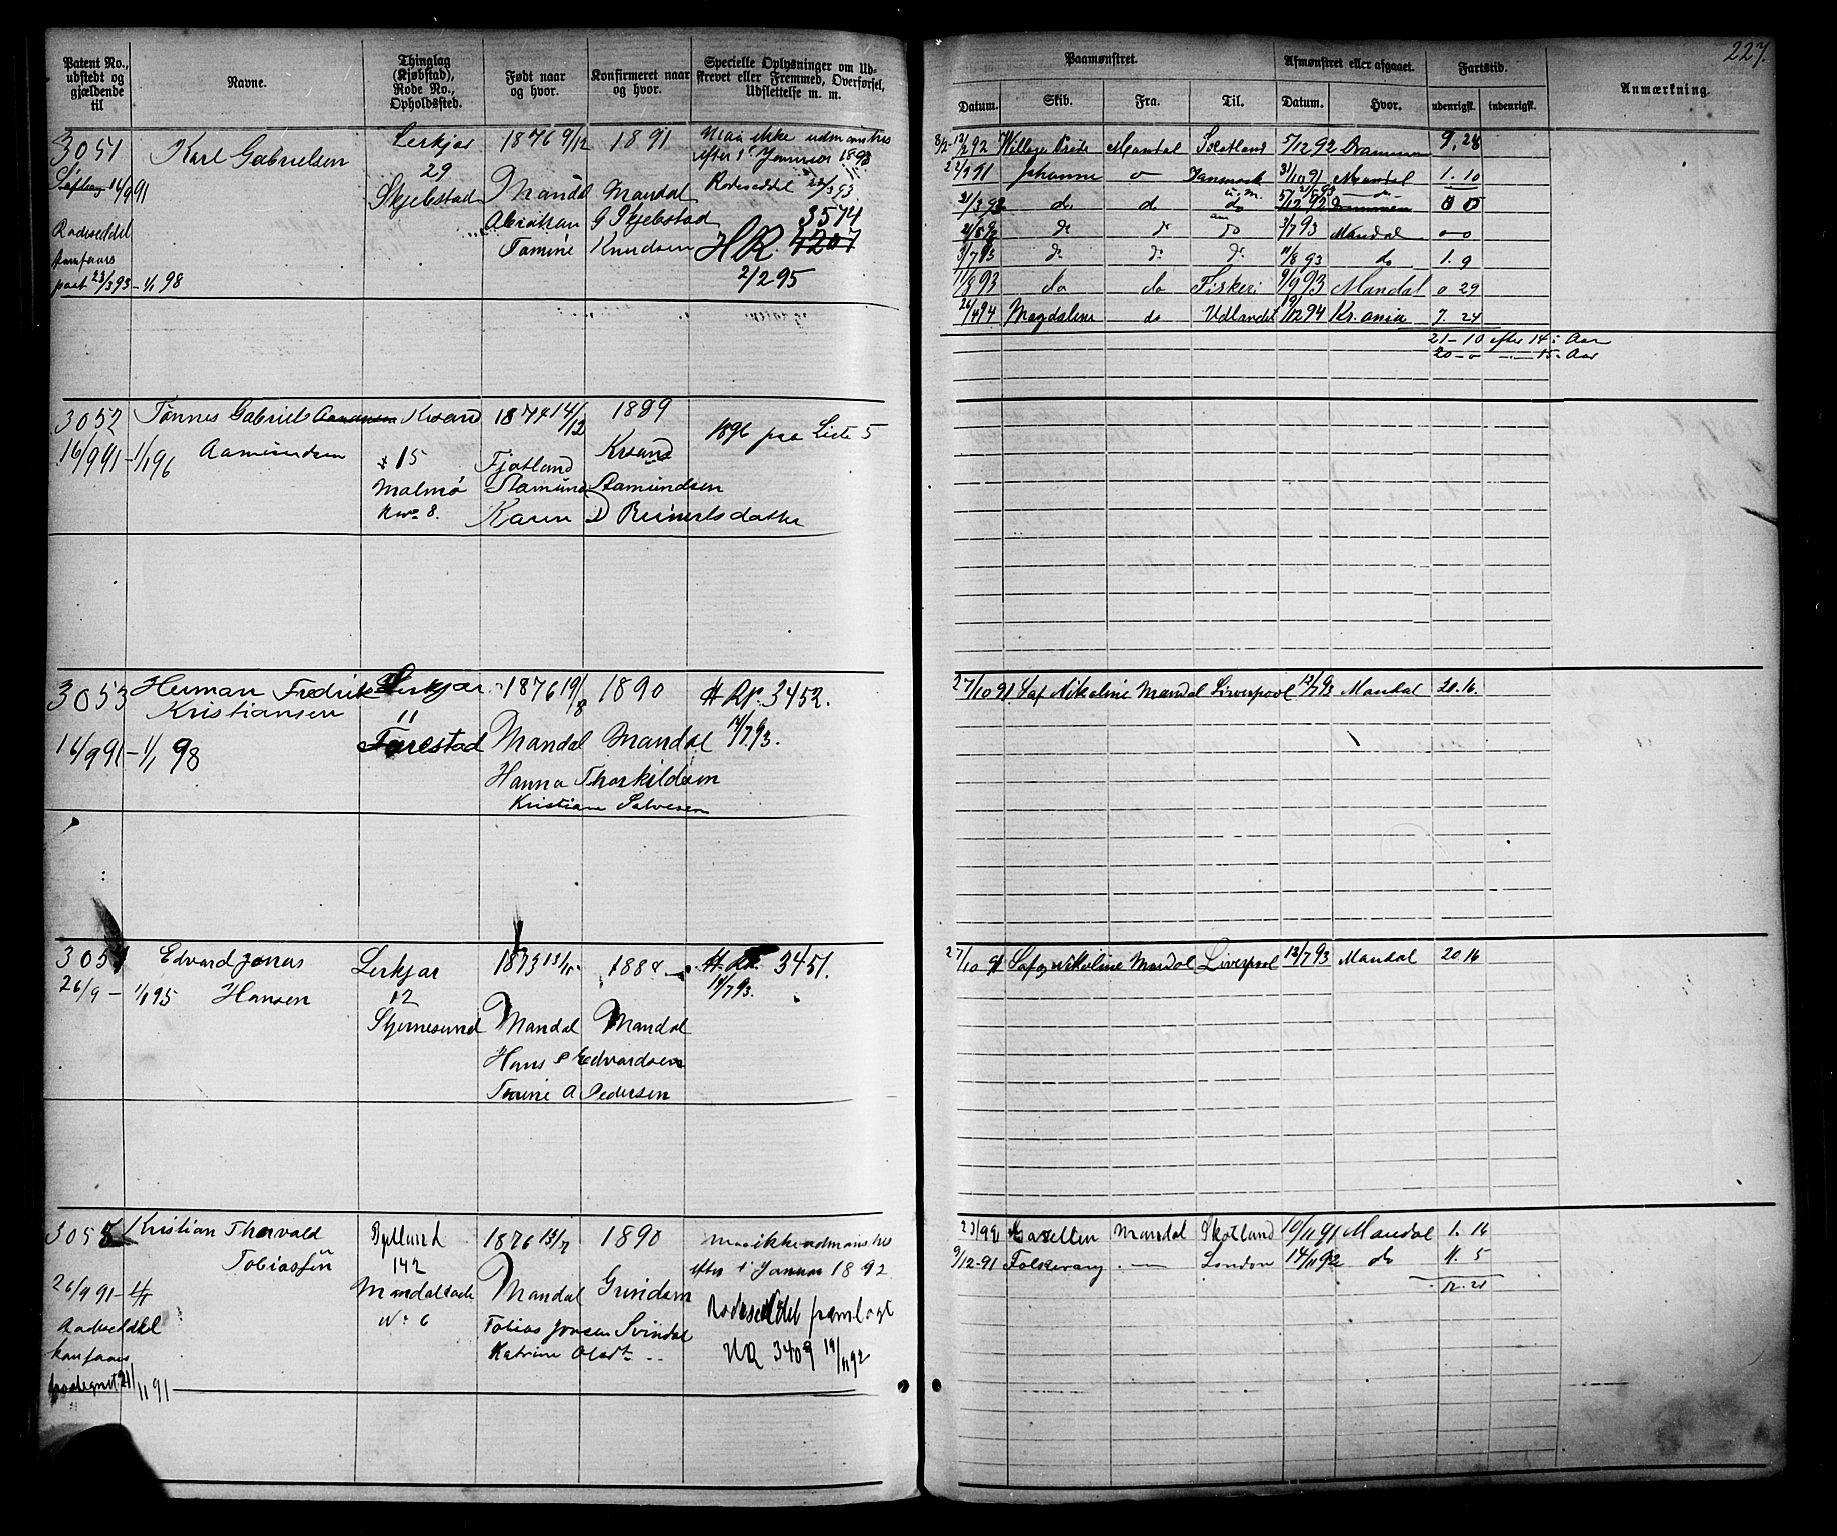 227.
Patent No., udstedt og gjældende til
Navne.
Thinglag (Kjøbstad), Rode No., Opholdssted.
Født naar og hvor.
Konfirmeret naar og hvor.
Specielle Oplysninger om Udskrevet eller Fremmed, Overførsel, Udslettelse m. m.
Paamønstret.
Afmønstret eller afgaaet.
Fartstid.
Anmærkning.
Datum. Skib. Fra. Til. Datum. Hvor. udenrigsk. indenrigsk.
3051 Karl Gabrielsen Lerkjær 1876 9/12 1891 Maa ikke udmønstres
efter 1' Januar 1893
16/9 91 29
Skjebstad Mandal Mandal Rodeseddel 23/3 93
Rodeseddel Abraham G Skjebstad 3574
Tomine Knudsen HR 4207
paat 23/3 93 – 1/1 98 2/2 95
12/2 92 Village Pride Mandal Skotland 5/12 92 Drammen 9. 28
Johanne Danmark 31/10 91 Mandal 1. 10
21/3 93 do do do 5/12 92 Drammen
do do do 3/7 93 Mandal
3/7 93 do do do 11/8 93 do 1. 9
11/8 93 do do Fiskeri 9/9 93 Mandal 0 29
26/4 94 Magdalene do Udlandet 19/12 94 Kr.ania 7. 24
21–10 efter 14 Aar
20–0 –"– 15 Aar
3052 Tønnes Gabriels Aamundsen Krsand 1874 14/12 1889
16/9 91 – 1/1 96 Aamundsen 15 Fjotland Krsand 1896 paa Liste 5
Malmø Aamund Aamundsen
No 8. Karen D Reinertsdatter
3053 Herman Fredrik Lerkjær 1876 19/8 1890 H Rp. 3452.
Kristiansen 11
16/9 91 – 1/1 98 Farestad Mandal Mandal 14/7 93.
Hanna Thorkildsen
Kristian Salvesen
27/10 91 Saf Nikoline Mandal Liverpool 12/7 93 Mandal 20. 16.
3054 Edvard Jonas Lerkjær 1873 1888 3451.
26/9 – 1/1 95 Hansen 12 14/7 93.
Stjernesund Mandal Mandal
Hans Edvardsen
Tomine A Pedersen
27/10 91 Nikoline Mandal Liverpool 12/7 93 Mandal 20 16
3055 Kristian Thorvald 1876 13/7 1890 maa ikke udmønstres
Tobiassen 142 efter 1' Januar 1892
26/9 91 – 1/1 Mandal Grindem
No 6 Rodeseddel fremlagt
Rodeseddel Tobias Jensen Svindal
Katrine Olsdt. HR 3409 19/11 92
21/11 91
Gazellen Mandal Skotland 10/11 91 Mandal 1. 16
9/12 91 Falkevang –"– London 14/11 92 do 11. 5
12. 21